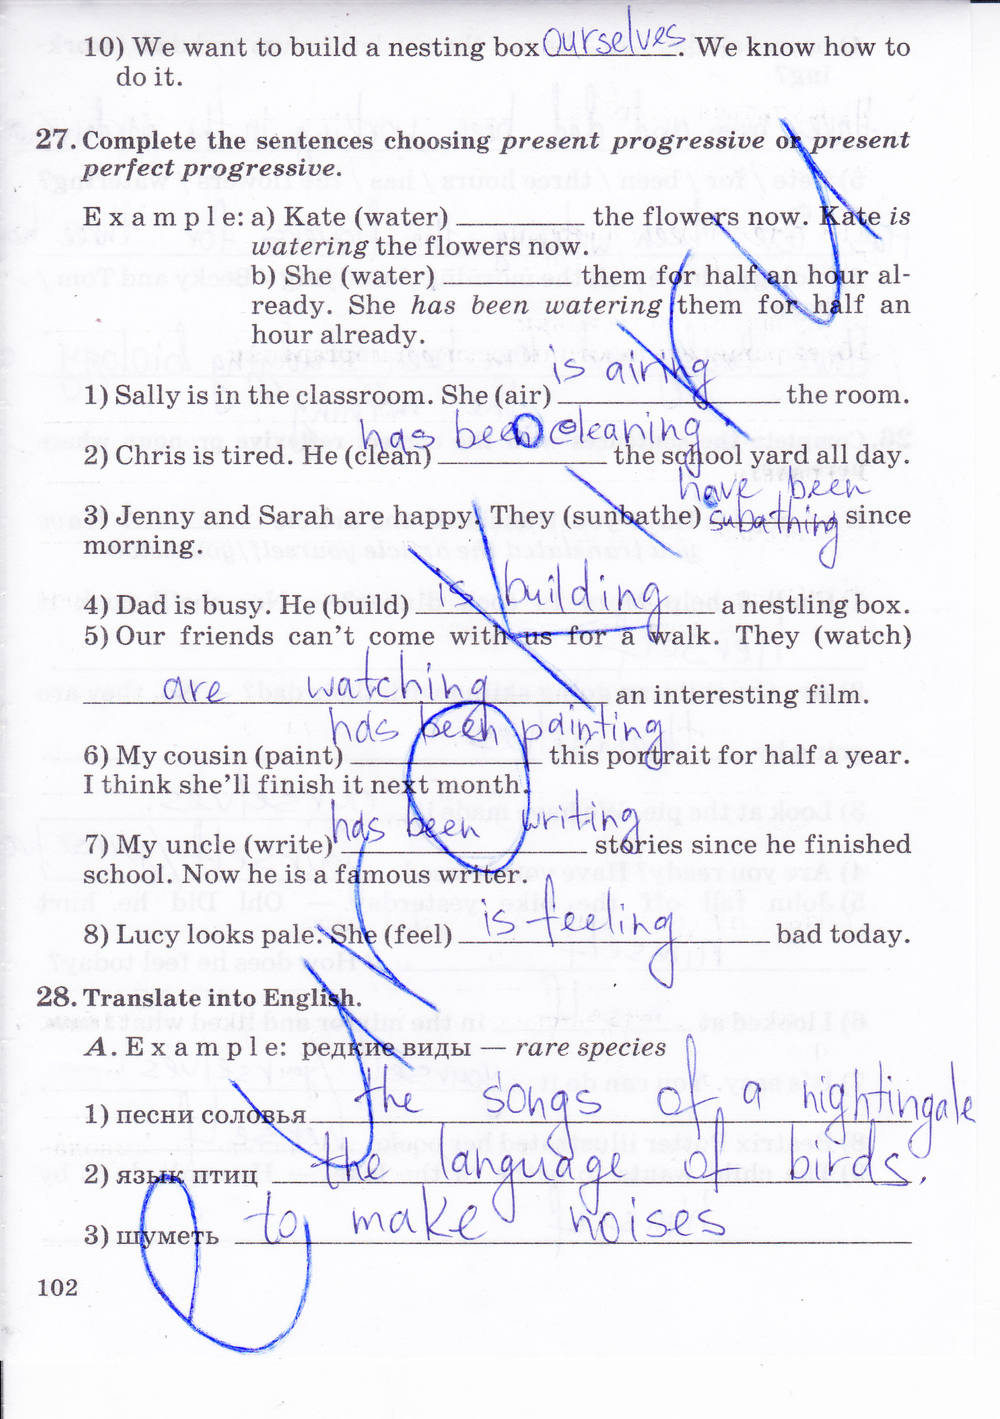 10) We want to build a nesting box ourselves. We know how to
do it.
27. Complete the sentences choosing present progressive or present
perfect progressive.
Example: a) Kate (water) ________ the flowers now. Kate is
watering the flowers now.
b) She (water) ________ them for half an hour al-
ready. She has been watering them for half an
hour already.
is airing
1) Sally is in the classroom. She (air) ________ the room.
has been cleaning
2) Chris is tired. He (clean) ________ the school yard all day.
have been
3) Jenny and Sarah are happy. They (sunbathe) subathing since
morning.
4) Dad is busy. He (build) is building a nestling box.
5) Our friends can't come with us for a walk. They (watch)
are watching an interesting film.
has been painting
6) My cousin (paint) ________ this portrait for half a year.
I think she'll finish it next month.
has been writing
7) My uncle (write) ________ stories since he finished
school. Now he is a famous writer.
8) Lucy looks pale. She (feel) is feeling bad today.
28. Translate into English.
A. Example: редкие виды — rare species
1) песни соловья the songs of a nightingale
2) язык птиц the language of birds.
3) шуметь to make noises
102